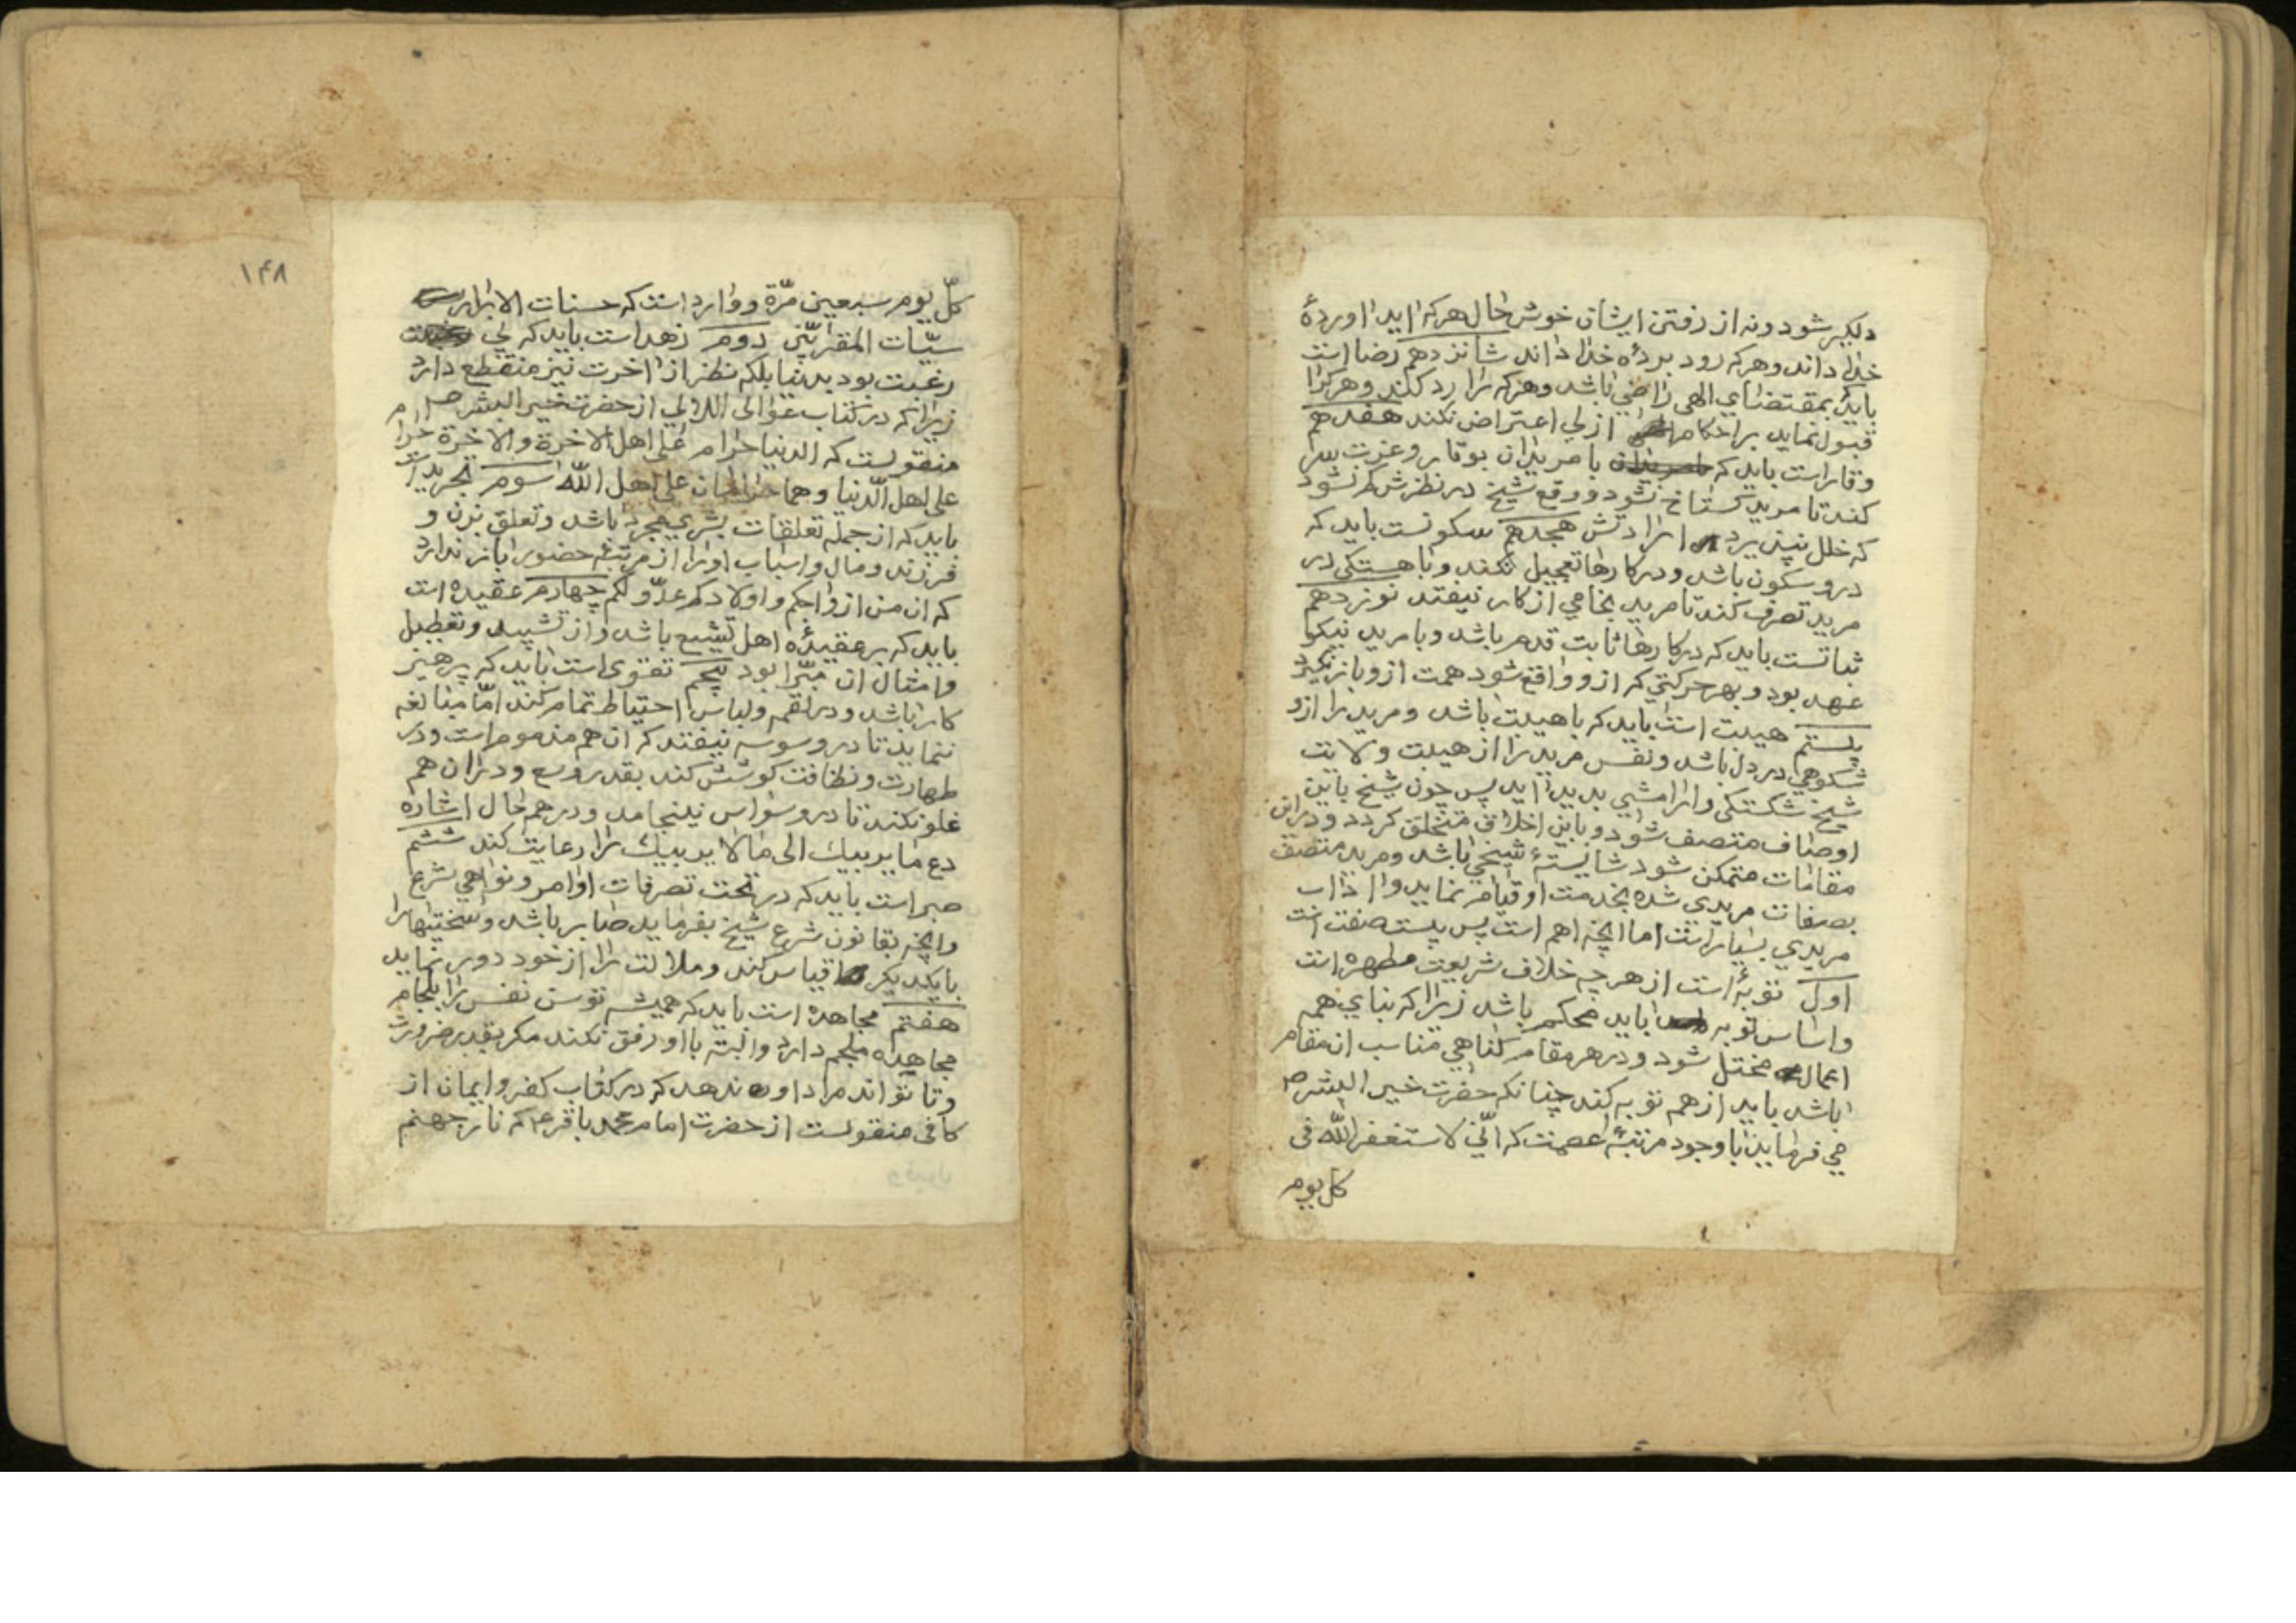 دلکیر شود و نه از رفتن ایشان خوش حال هر که آید آوردۀ
خدا داند و هر که رود بردۀ خدا داند شانزدهم رضا است
باید بمقتضای الهی راضی باشد و هر که را رد کند و هر کرا
قبول نماید بر احکام ازلی اعتراض نکند هفدهم
وقار است باید که با مریدان بوقار و عزت بسر
کند تا مرید کستاخ نشود و وقع شیخ در نظرش کم نشود
که خلل پذیرد ارادتش هجدهم سکونست باید که
درو سکون باشد و در کارها تعجیل نکند و باهستکی در
مرید تصرف کند تا مرید بخامی از کار نیفتد نوزدهم
ثباتست باید که در کارها ثابت قدم باشد و با مرید نیکو
عهد بود و بهر حرکتی که ازو واقع شود همت ازو باز نکیرد
بیستم هیبت است باید که با هیبت باشد و مرید را ازو
شکوهی در دل باشد و نفس مرید را از هیبت ولایت
شیخ شکستکی و آرامشی پدید آید پس چون شیخ باین
اوصاف متصف شود و باین اخلاق متخلق کردد و در این
مقامات متمکن شود شایستۀ شیخی باشد و مرید متصف
بصفات مریدی شده بخدمت او قیام نماید و آداب
مریدی بسیار است اما آنچه اهم است پس بیست صفت است
اول توبۀ است از هر چه خلاف شریعت مطهره است
و اساس توبه باید محکم باشد زیرا که بنای همه
اعمال مختل شود و در هر مقام کناهی مناسب ان مقام
باشد باید از هم توبه کند چنانکه حضرت خیر البشر ص
می فرماید با وجود مرتبۀ عصمت که انّی لاستغفر الله فی
کل یوم
۱۴۸
کلّ یوم سبعین مرّة و وارد است که حسنات الابرار
سیّات المقرّبین دوم زهد است باید که بی
رغبت بود بدنیا بلکه نظر از اخرت نیز منقطع دارد
زیرا که در کتاب عوالی اللالی از حضرت خیر البشر ص
منقولست که الدنیا حرام علی اهل الاخرة والاخرة حرام
علی اهل الدّنیا وهما حرامان علی اهل الله سوم تجرید است
باید که از جمله تعلقات بشری مجرد باشد و تعلق بزن و
فرزند و مال و اسباب او را از مرتبۀ حضور باز ندارد
که ان من ازواجکم و اولادکم عدوّ لکم چهارم عقیده است
باید که بر عقیدۀ اهل تشیع باشد و از تشبیه و تعطیل
و امثال ان مبّرا بود پنجم تقوی است باید که پرهیز
کار باشد و در لقمه و لباس احتیاط تمام کند امّا مبالغه
ننماید تا در وسوسه نیفتد که ان هم مذموم است و در
طهارت و نظافت کوشش کند بقدر وسع و در ان هم
غلو نکند تا در وسواس نینجامد و در هم حال اشاره
دع ما یریبک الی ما لا یریبک را رعایت کند ششم
صبر است باید که در تحت تصرفات اوامر و نواهی شرع
و آنچه بقانون شرع شیخ بفرماید صابر باشد و سختیها را
بایکدیکر قیاس کند و ملالت را از خود دور نماید
هفتم مجاهده است باید که همیشه توسن نفس را بلجام
مجاهده ملجم دارد و البته با او رفق نکند مکر بقدر ضرورت
و تا تواند مراد او ندهد که در کتاب کفر و ایمان از
کافی منقولست از حضرت امام محمد باقر ع م که نار جهنم